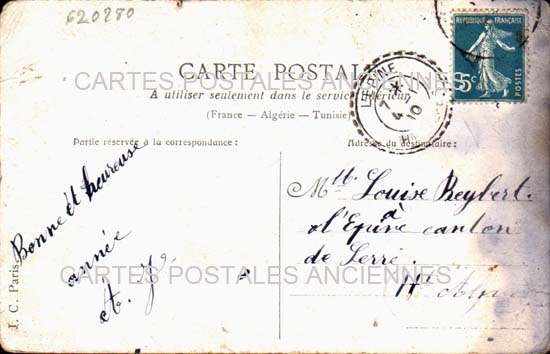 620980
RÉPUBLIQUE FRANÇAISE
5c
POSTES
CARTES POSTALES ANCIENNES
CARTE POSTALE
A utiliser seulement dans le service intérieur
(France - Algérie - Tunisie)
L'EPINE
7 *
4
10
Partie réservée à la correspondance.
Adresse du destinataire.
Bonne et heureuse
année
A. J.
Mlle Louise Reybert.
à
l'Epine canton
de Serre.
Htes Alpes
CARTES POSTALES ANCIENNES
J. C. Paris